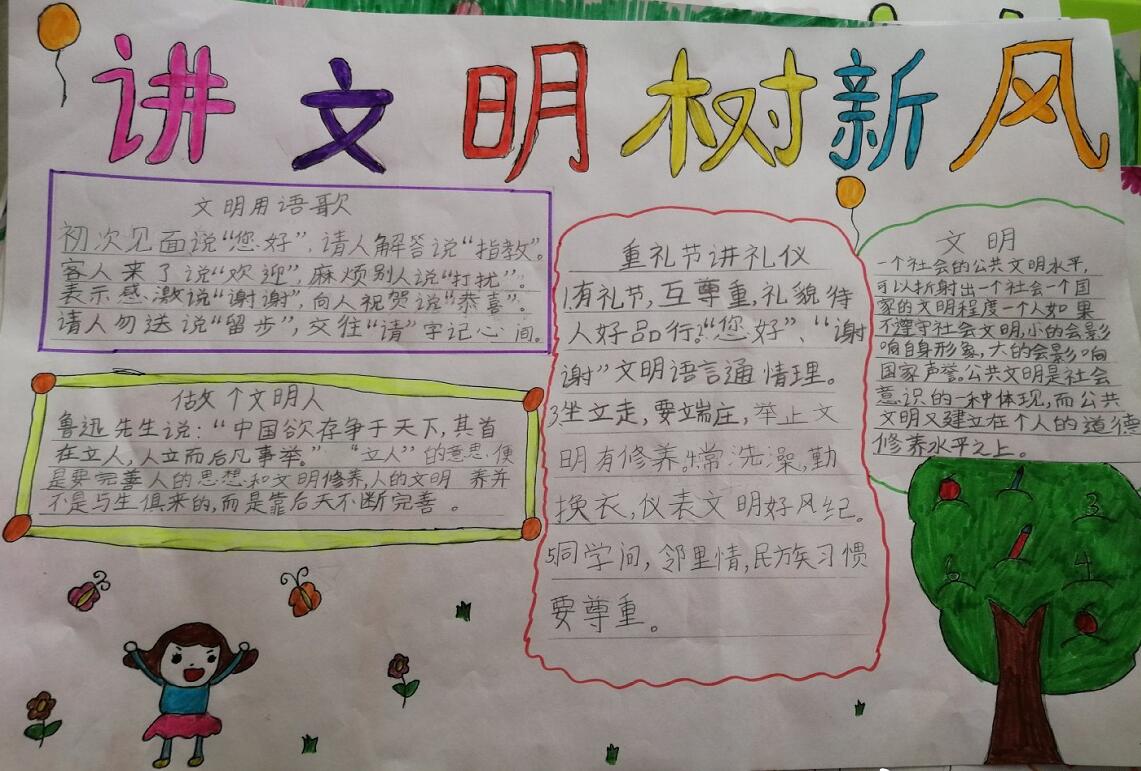 讲文明树新风
文明用语歌
初次见面说“您好”,请人解答说“指教”。
客人来了说“欢迎”,麻烦别人说“打扰”。
表示感激说“谢谢”,向人祝贺说“恭喜”。
请人勿送说“留步”,交往“请”字记心间。
做个文明人
鲁迅先生说:“中国欲存争于天下,其首
在立人,人立而后凡事举。”“立人”的意思便
是要完善人的思想和文明修养,人的文明 养并
不是与生俱来的,而是靠后天不断完善。
重礼节讲礼仪
1.有礼节,互尊重,礼貌待
人好品行。2.“您好”、“谢
谢”文明语言通情理。
3.坐立走,要端庄,举止文
明有修养。4.常洗澡,勤
换衣,仪表文明好风纪。
5.同学间,邻里情,民族习惯
要尊重。
文明
一个社会的公共文明水平,
可以折射出一个社会一个国
家的文明程度一个人如果
不遵守社会文明,小的会影
响自身形象,大的会影响
国家声誉。公共文明是社会
意识的一种体现,而公共
文明又建立在个人的道德
修养水平之上。
3
4
6